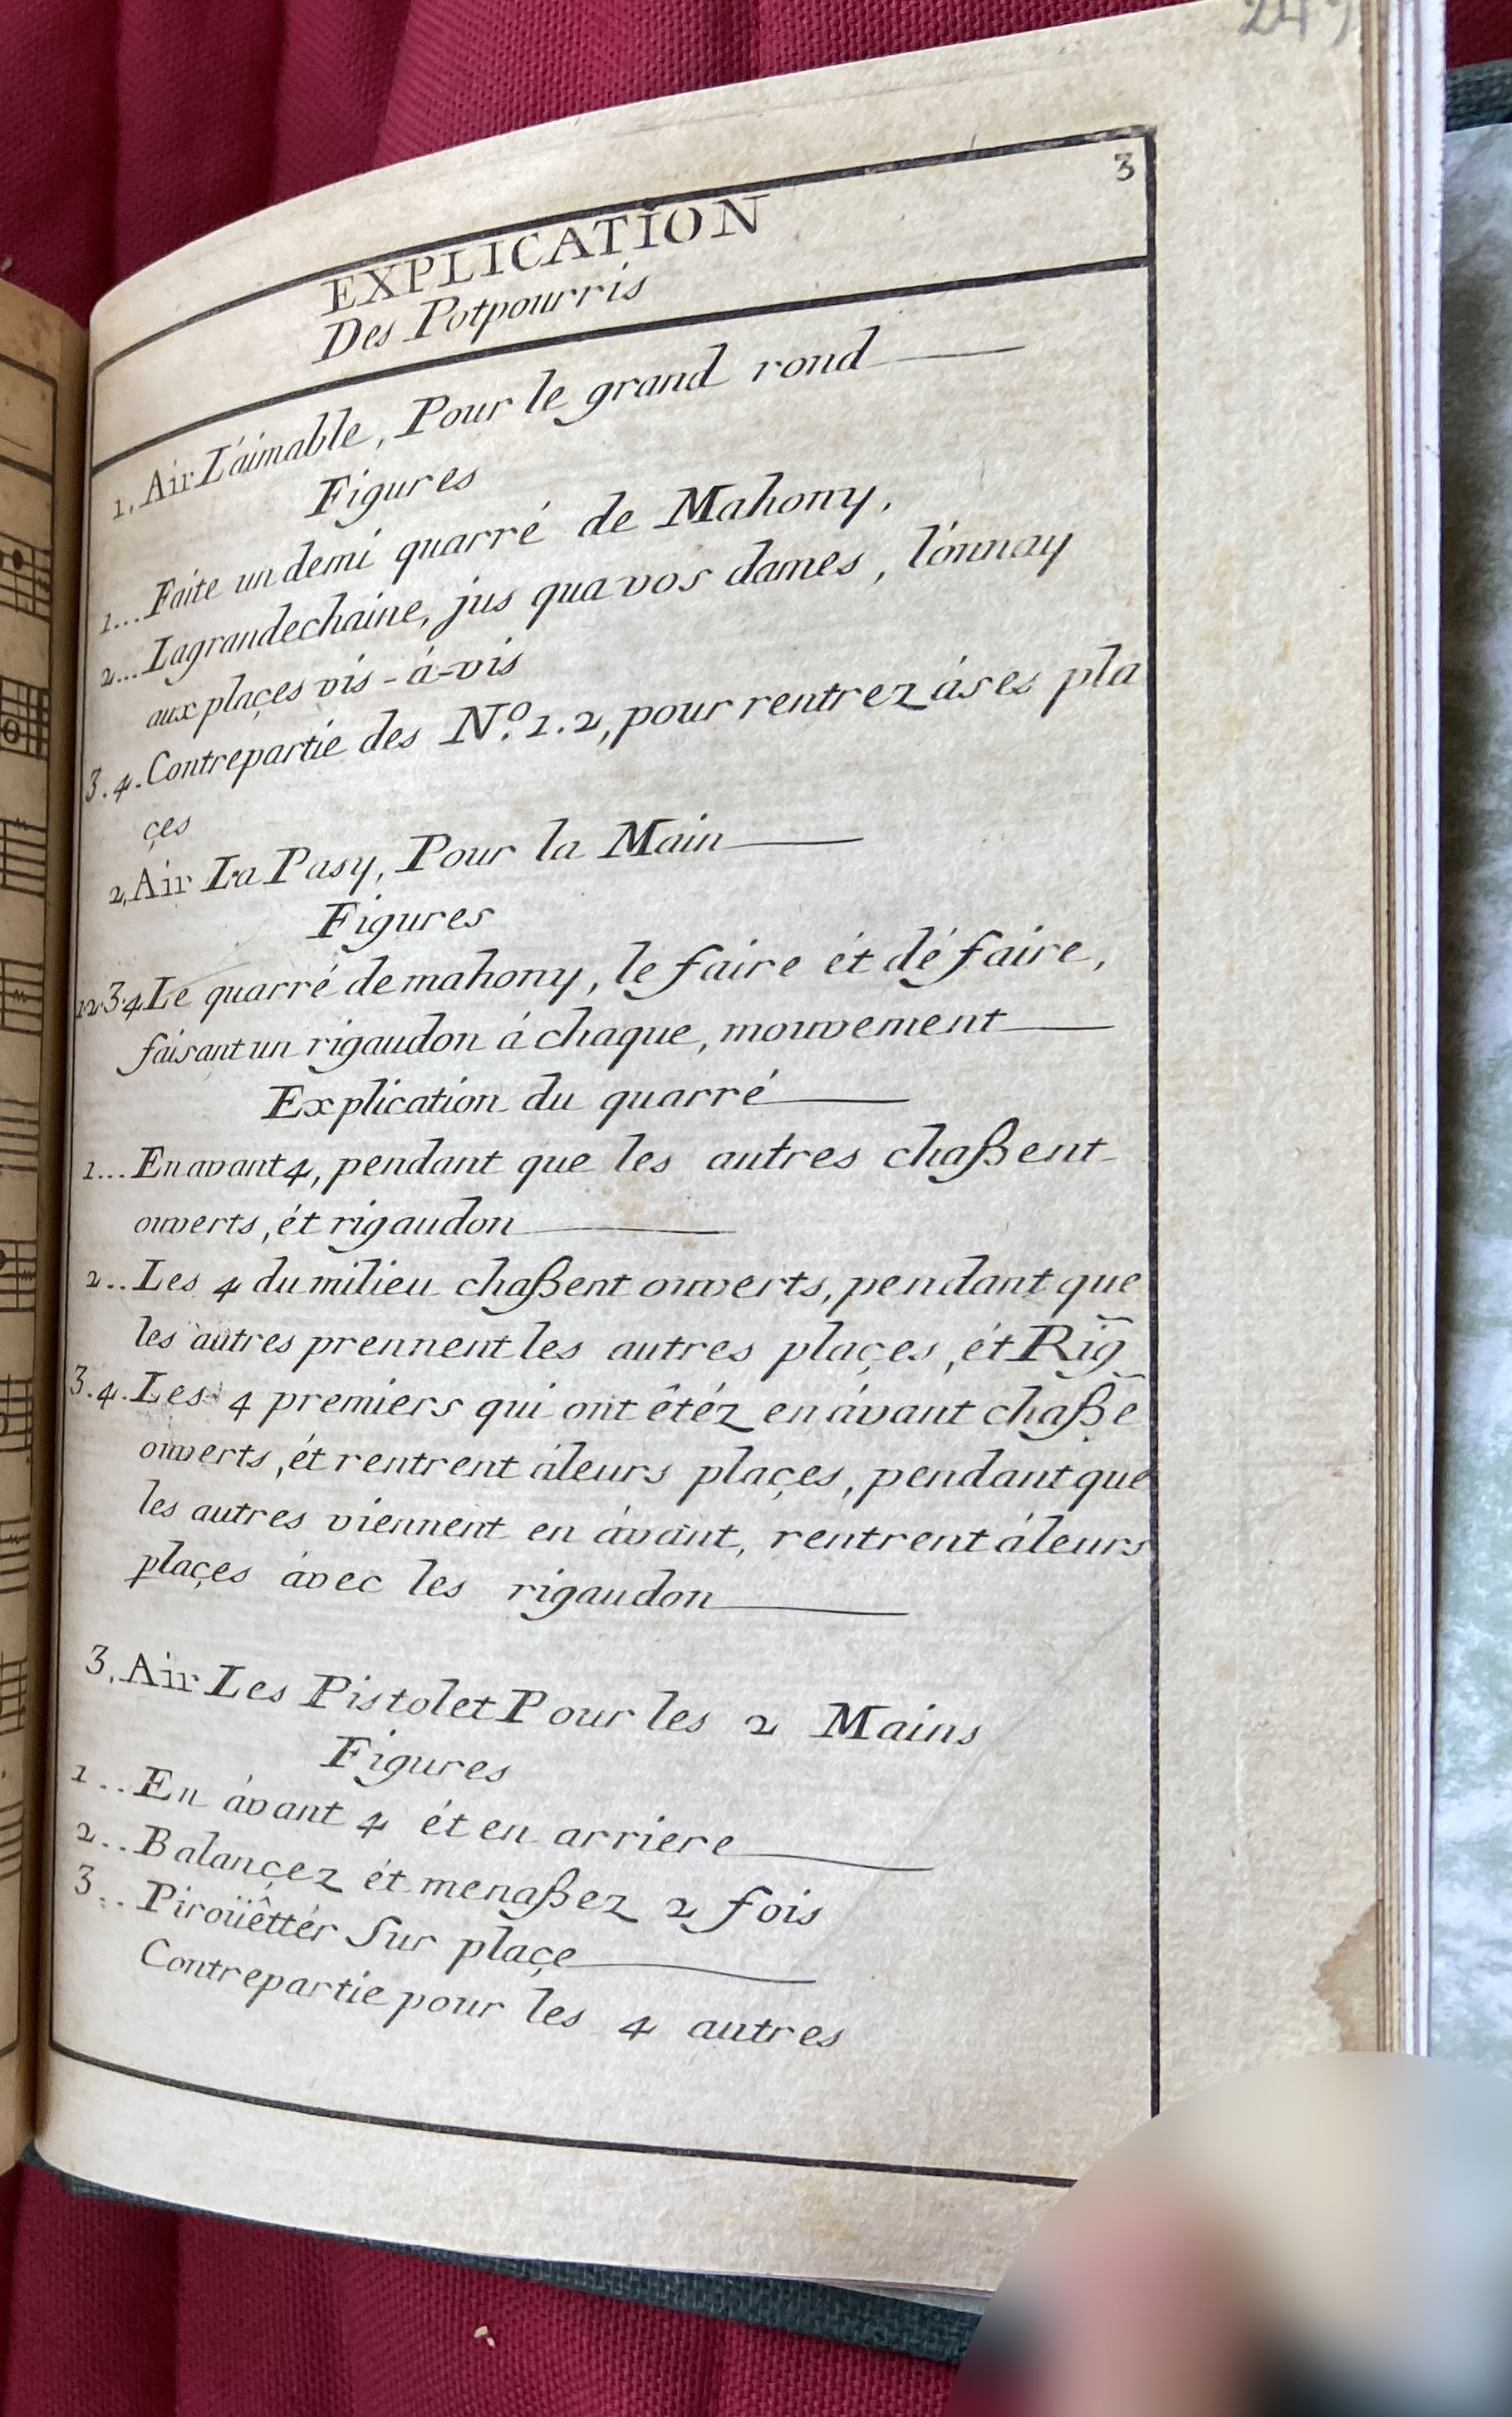 3
EXPLICATION
Des Potpourris
1. Air L'aimable, Pour le grand rond
Figures
1... Faite un demi quarré de Mahony,
2... La grande chaine, jus qua vos dames,
aux plaçes vis-à-vis
3.4. Contrepartie des N.º 1.2, pour rentrez áses pla
çes
2, Air La Pasy, Pour la Main
Figures
1234 Le quarré de mahony, le faire ét dé faire,
faisant un rigaudon á chaque, mouvement
Explication du quarré
1... En avant 4, pendant que les autres chaßent
ouverts, ét rigaudon
2.. Les 4 du milieu chaßent ouverts, pendant que
les autres prennent les autres plaçes, ét Rig
3.4. Les 4 premiers qui ont êtéz en ávant chaßẽ
ouverts, ét rentrent áleurs plaçes, pendant que
les autres viennent en ávant, rentrent áleurs
plaçes ávec les rigaudon
3. Air Les Pistolet Pour les 2 Mains
Figures
1.. En ávant 4 ét en arriere
2.. Balançez ét menaßez 2 fois
3.. Piroüêttér Sur plaçe
Contrepartie pour les 4 autres